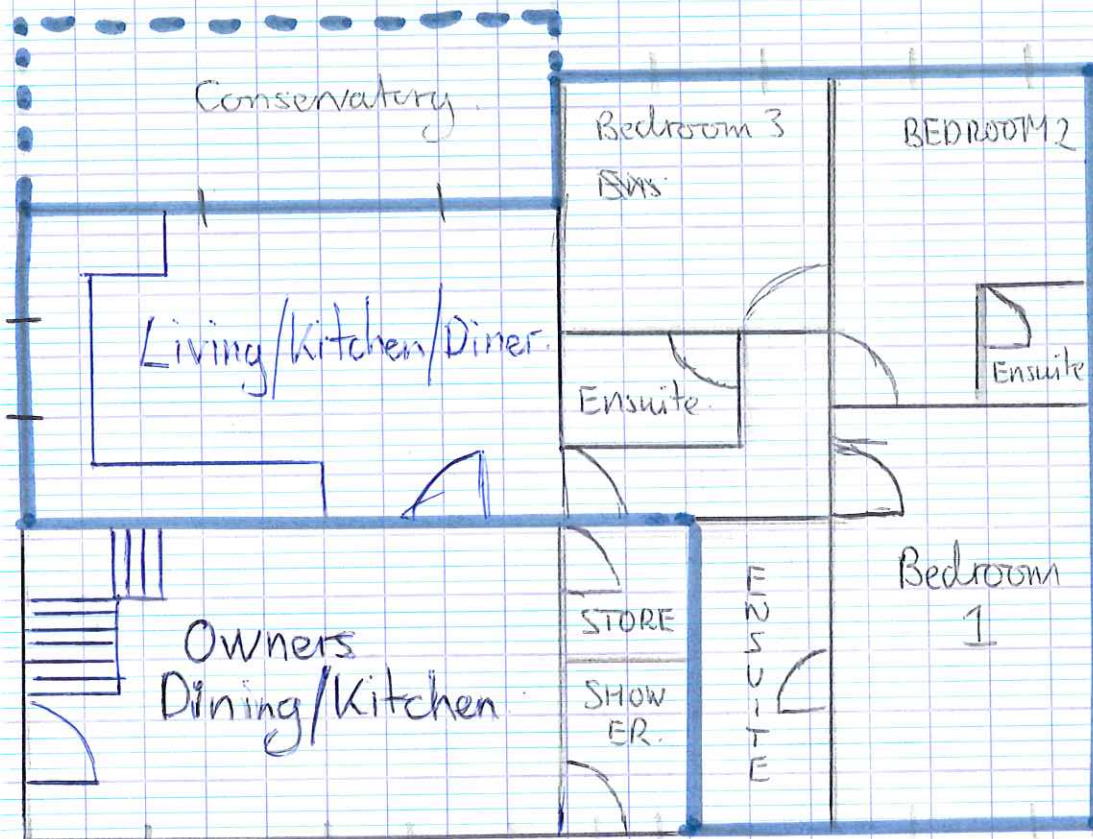 Conservatory.
Bedroom 3
BEDROOM 2
Living/Kitchen/Diner.
Ensuite.
Ensuite
Owners
Dining/Kitchen
STORE
SHOW
ER.
E
N
S
U
I
T
E
Bedroom
1